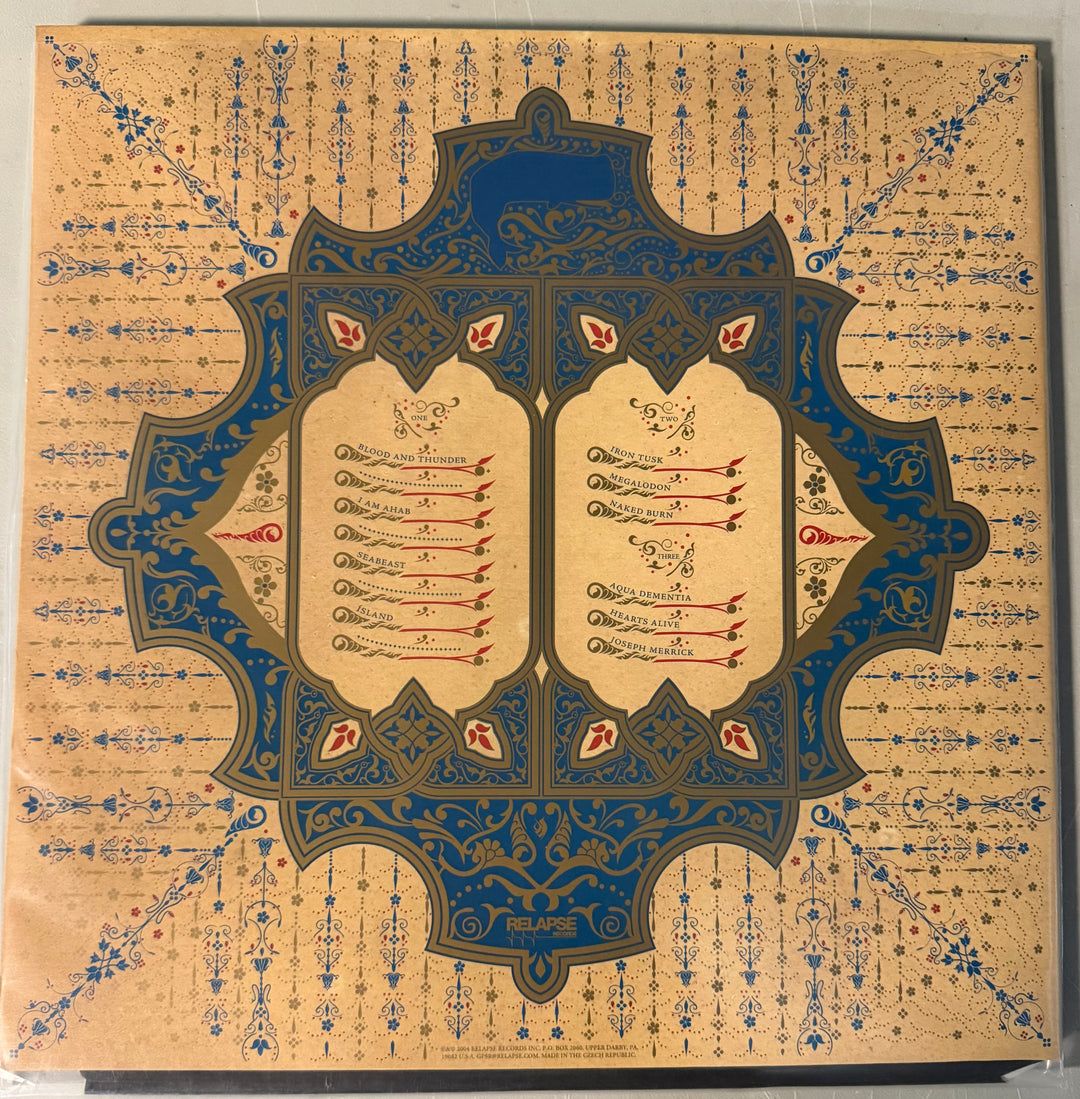 ONE
BLOOD AND THUNDER
I AM AHAB
SEABEAST
ISLAND
TWO
IRON TUSK
MEGALODON
NAKED BURN
THREE
AQUA DEMENTIA
HEARTS ALIVE
JOSEPH MERRICK
RELAPSE
RECORDS
℗&© 2004 RELAPSE RECORDS INC. P.O. BOX 2060, UPPER DARBY, PA.
19082 U.S.A. GPSR@RELAPSE.COM. MADE IN THE CZECH REPUBLIC.